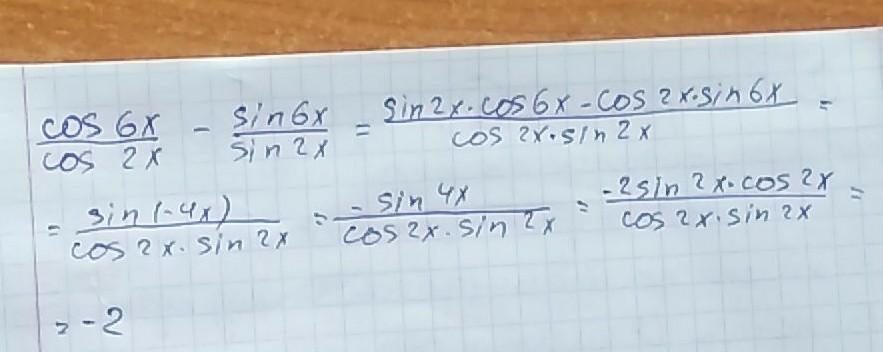 cos 6x / cos 2x - sin6x / sin 2x = sin2x·cos6x-cos2x·sin6x / cos 2x·sin2x =
= sin(-4x) / cos2x·sin2x = -sin4x / cos2x·sin2x = -2sin2x·cos2x / cos2x·sin2x =
= -2